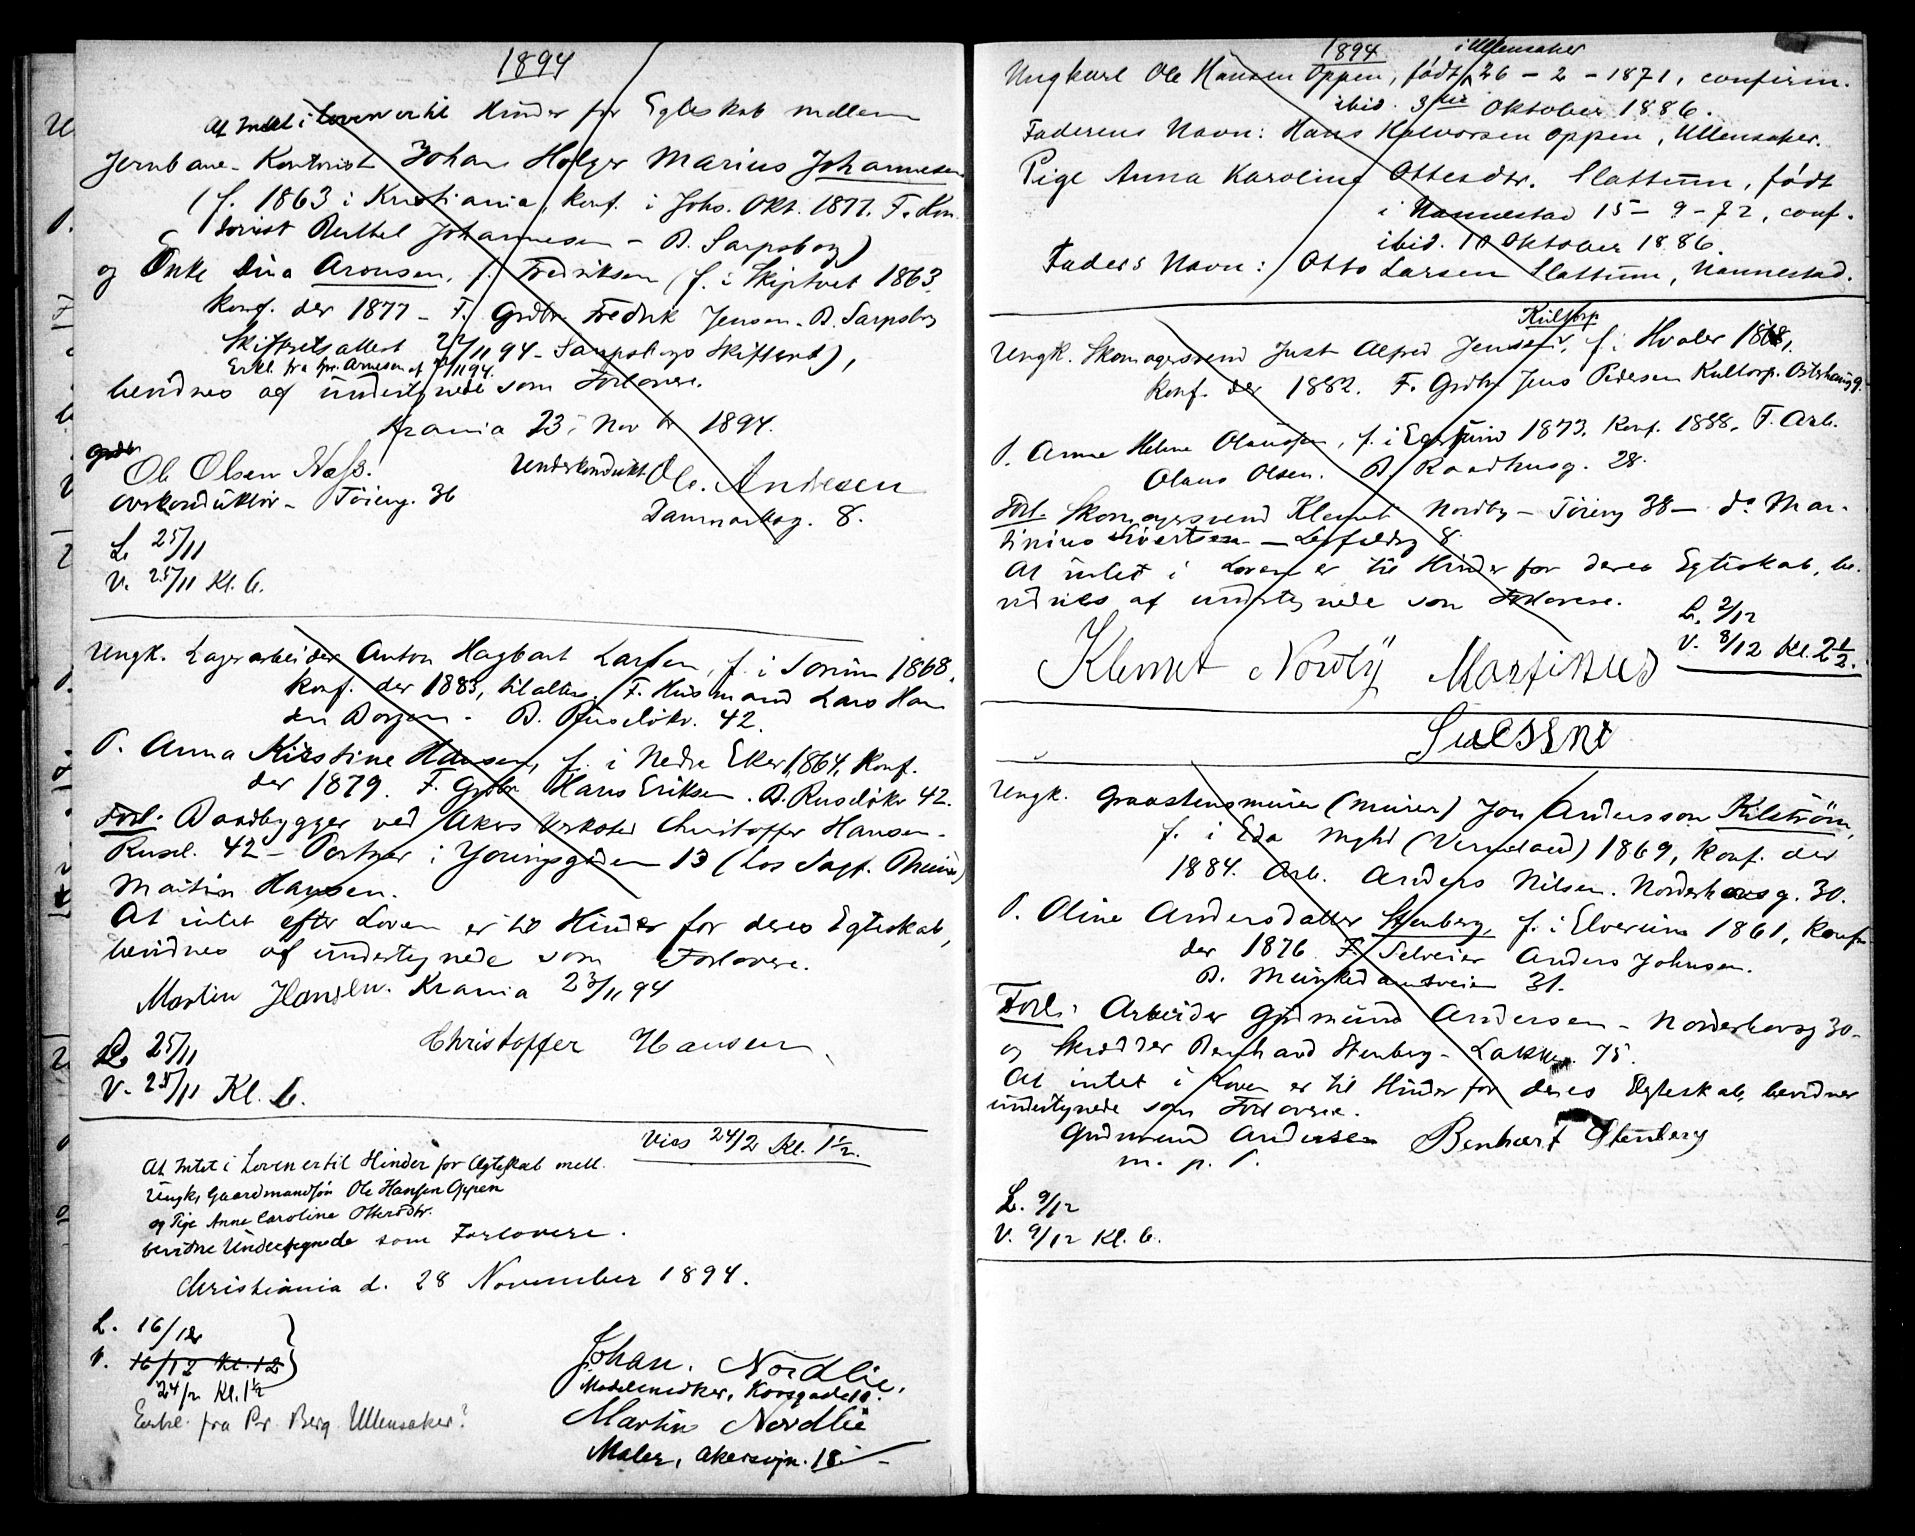 1894
At Intet i Loven er til Hinder for Egteskab mellem
Jernbane-Kontorist Johan Holger Marius Johannesen
(f. 1863 i Kristiania, konf. i Johs. Okt. 1877. F. Kon-
torist Berthel Johannesen - B. Sarpsborg)
og Enke Dina Aronsen, f. Fredriksen (f. i Skiptvet 1863.
konf. der 1877 - F. Grdbr. Fredrik Jensen. B. Sarpsborg
Skifteretsattest 22/11 94 - Sarpsborgs Skifteret),
Erkl. fra
bevidnes af undertegnede som Forlovere.
Krania 23. Nov br 1894.
Ole Olsen Næss.
Underkonduktør Ole. Andresen
Overkonduktør - Tøieng. 36
Danmarksg. 8.
L. 25/11
V. 25/11 Kl. 6.
Ungk. Lagerarbeider Anton Hagbart Larsen, f. i Sørum 1868,
konf. der 1883, til alters. F. Husmand Lars Han
sen Borgen. B. Ruseløkv. 42.
P. Anna Kirstine Hansen, f. i Nedre Eker 1864, konf.
der 1879. F. Grdbr Hans Eriksen. B. Ruseløkv 42.
Forl. Baadbygger ved Akers Verksted Christoffer Hansen -
Rusel. 42 - Portner i Youngsgaden 13 (hos Sagf. )
Martin Hansen.
At intet efter Loven er til Hinder for deres Egteskab,
bevidnes af undertegnede som Forlovere.
Martin Hansen. Krania 23/11 94
Christoffer Hansen.
L. 25/11
V. 25/11 Kl. 6.
Vies 24/2 Kl. 1 1/2.
At Intet i Loven er til Hinder for Ægteskab mell.
Ungk. Gaardmandsøn Ole Hansen Oppen
og Pige Anne Caroline Ottersdtr.
bevidne Undertegnede som Forlovere.
Christiania d. 28 November 1894.
L. 16/12
V. 16/12 Kl. 12
24/2 Kl. 1 1/2
Johan. Nordlie.
Modelsnedker, Korsgade
Erkl. fra Pr. Berg Ullensaker?
Martin Nordlie
Maler, Akersvejn. 18.
1894
i Ullensaker
Ungkarl Ole Hansen Oppen, født 26 - 2 - 1871, confirm.
ibid. 3die Oktober 1886.
Faderens Navn: Hans Halvorsen Oppen, Ullensaker.
Pige Anna Karoline Ottesdtr. Slattum, født
i Nannestad 15 - 9 - 72, conf.
ibid. 10 Oktober 1886.
Faders Navn: Otto Larsen Slattum, Nannestad.
Kultorp
Ungk. Skomagersvend Just Alfred Jensen, f. i Hvaler 1868,
konf. der 1882. F. Grdbr Jens Pedersen Kultorp. Østehausg.
P. Anne Helene Olaussen, f. i Egersund 1873. Konf. 1888. F. Arb.
Olaus Olsen. B. Raadhusg. 28.
Forl. Skomagersvend Klemet Nordby - Tøieng 38 - do Mar-
tinius Sivertsen - 8.
At intet i Loven er til Hinder for deres Egteskab, be-
vidnes af undertegnede som Forlovere.
L. 2/12
V. 8/12 Kl. 2 1/2.
Klemet Nordby Martinus
Ungk. Graastensmurer (Murer) Jon Andersson Kilström,
f. i Eda Myhd (Vermland) 1869, konf. der
1884. Arb. Anders Nilsen. Norderhovsg. 30.
P. Oline Andersdatter Stenberg, f. i Elverum 1861, konf.
der 1876 F. Selveier Anders Johnsen.
B. Munkedamsveien 31.
Forl: Arbeider Gudmund Andersen - Norderhovsg 30 -
og Skrædder Bernhard Stenberg - Lakkeg. 75.
At intet i Loven er til Hinder for deres Egteskab, bevidner
undertegnede som Forlovere.
Gudmund Andersen Benhart Stenberg
m. p. P.
L. 9/12
V. 9/12 Kl. 6.